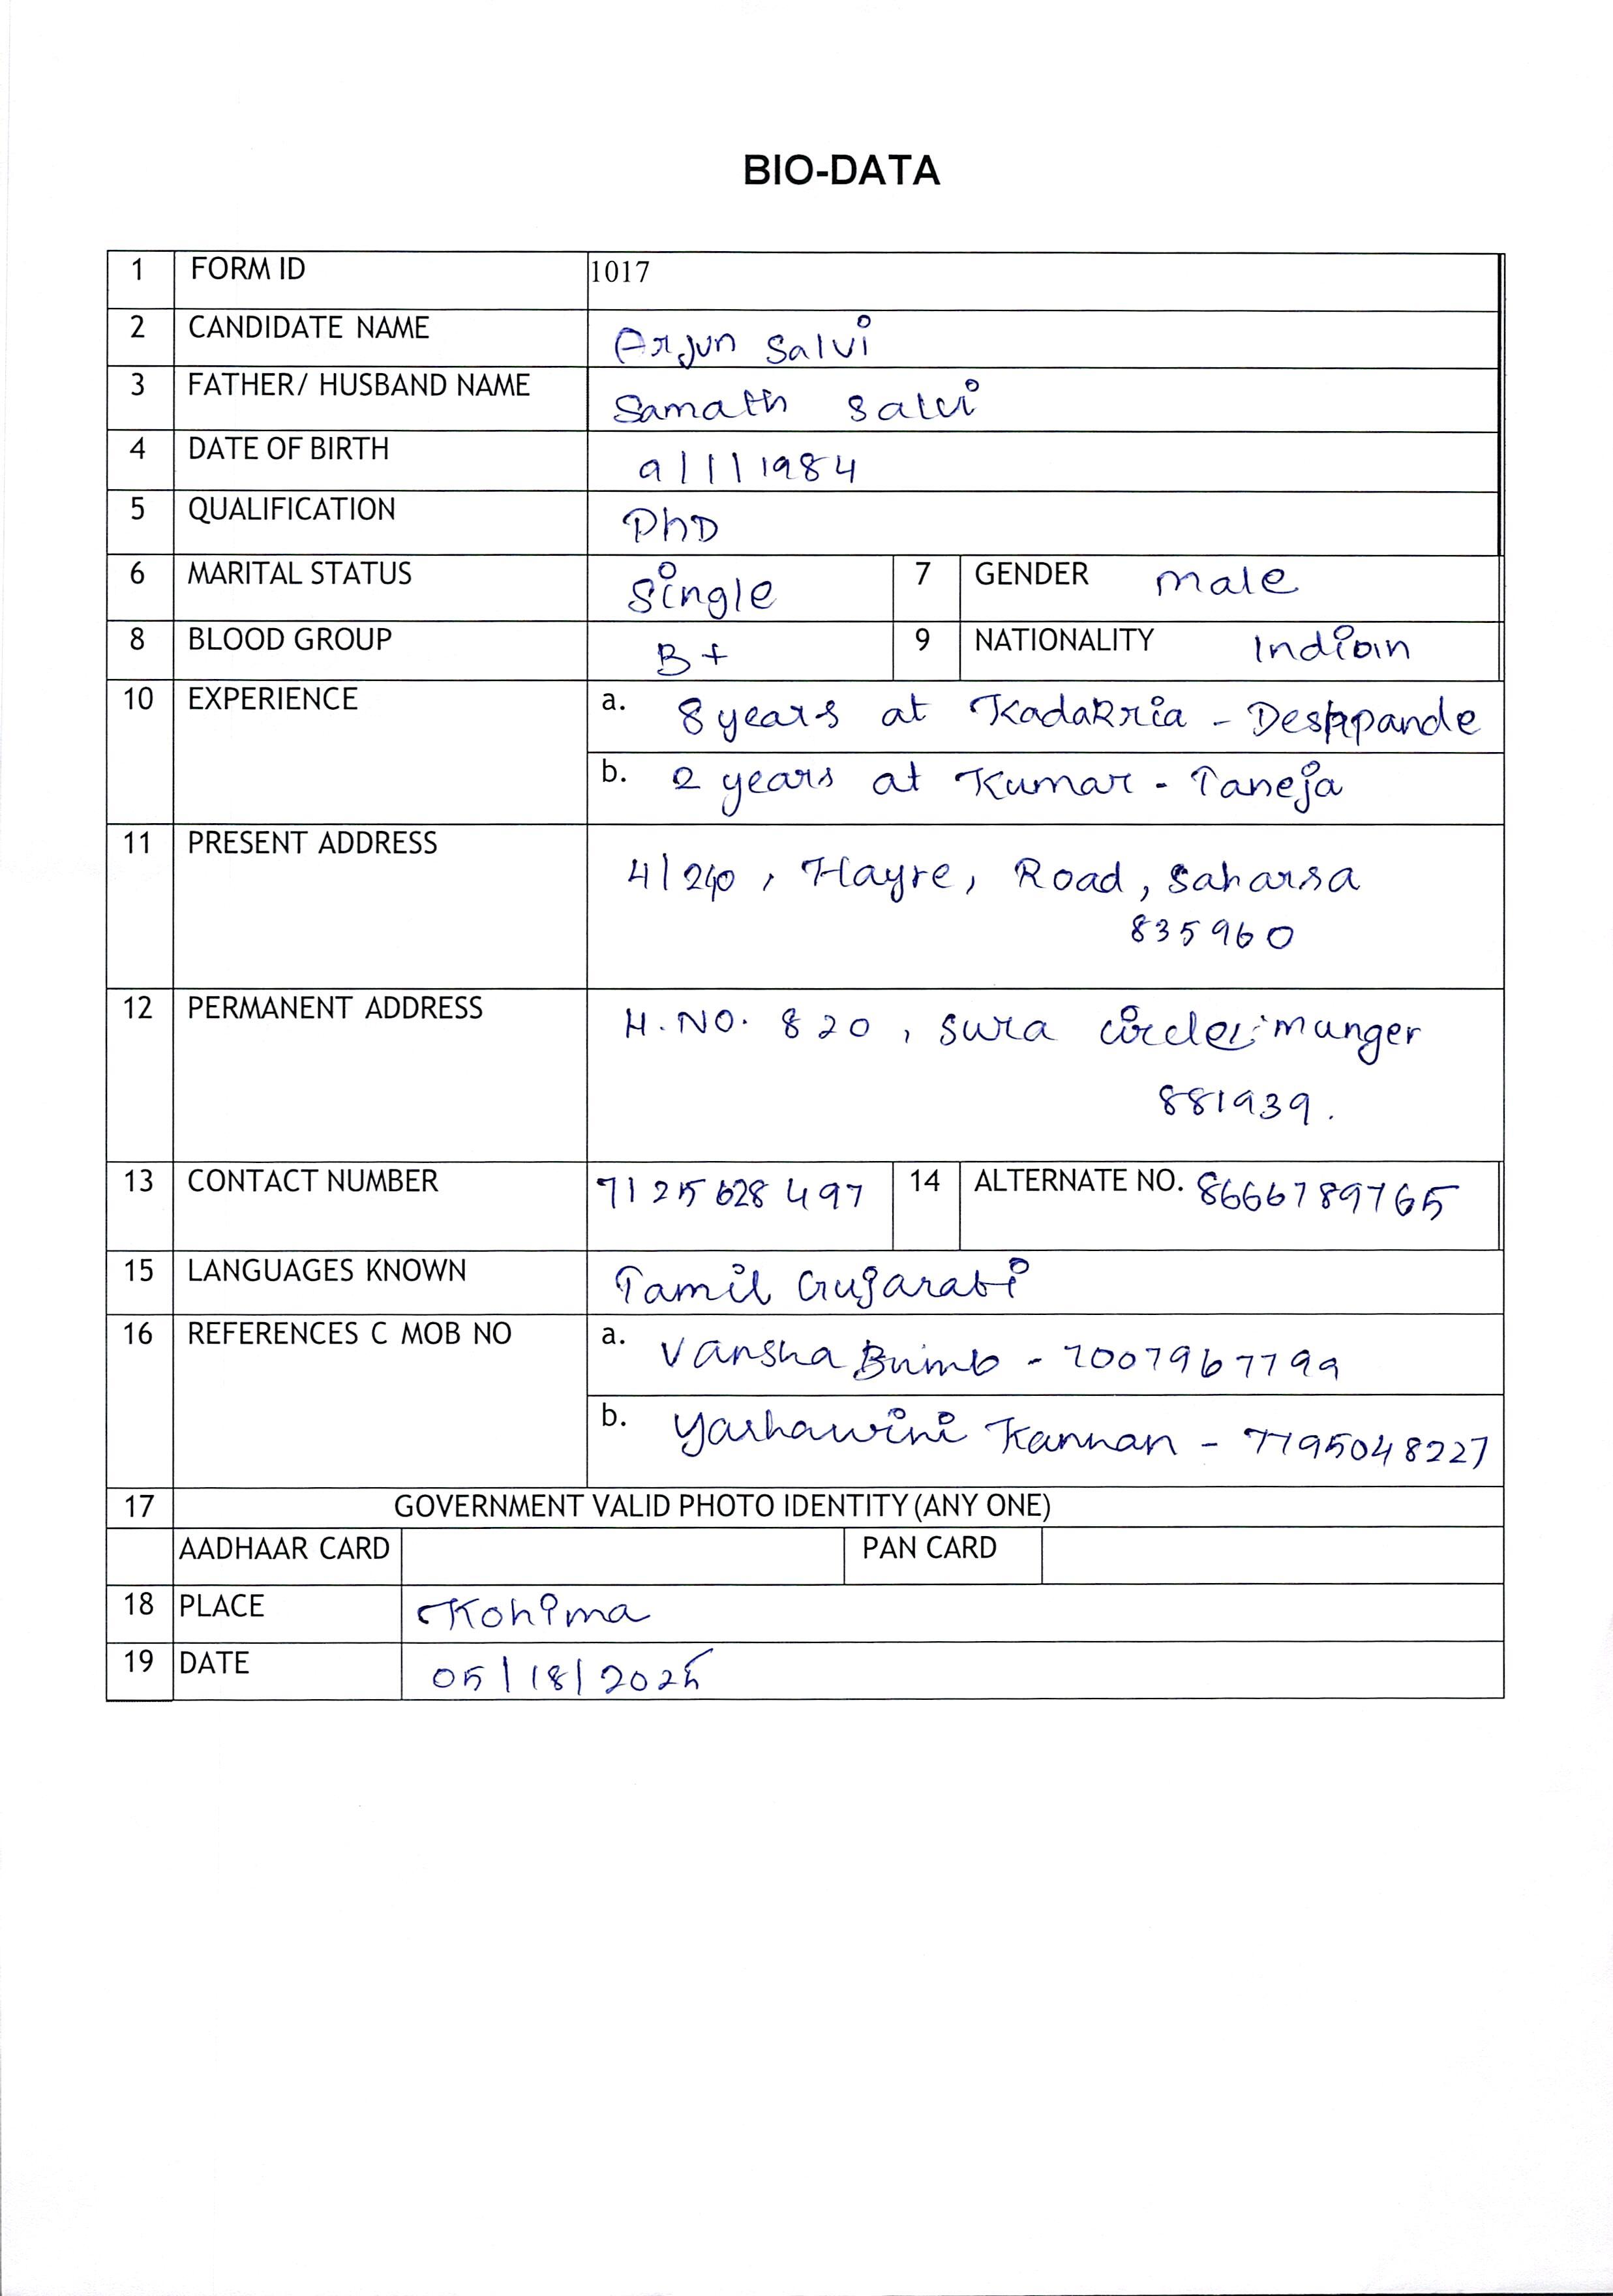 BIO-DATA
1 FORM ID 1017
2 CANDIDATE NAME Arjun Salvi
3 FATHER/ HUSBAND NAME Samath Salvi
4 DATE OF BIRTH 9/1/1984
5 QUALIFICATION PhD
6 MARITAL STATUS Single 7 GENDER male
8 BLOOD GROUP B+ 9 NATIONALITY Indian
10 EXPERIENCE a. 8 years at Kadakria - Deshpande
b. 2 years at Kumar - Taneja
11 PRESENT ADDRESS 4/240, Hayre, Road, Saharsa
835960
12 PERMANENT ADDRESS H.NO. 820, Sura Circle, munger
881939.
13 CONTACT NUMBER 7125628497 14 ALTERNATE NO. 8666789765
15 LANGUAGES KNOWN Tamil Gujarati
16 REFERENCES C MOB NO a. Vansha - 7007967799
b. Yashawini Kannan - 7795048227
17 GOVERNMENT VALID PHOTO IDENTITY (ANY ONE)
AADHAAR CARD PAN CARD
18 PLACE Kohima
19 DATE 05/18/2025